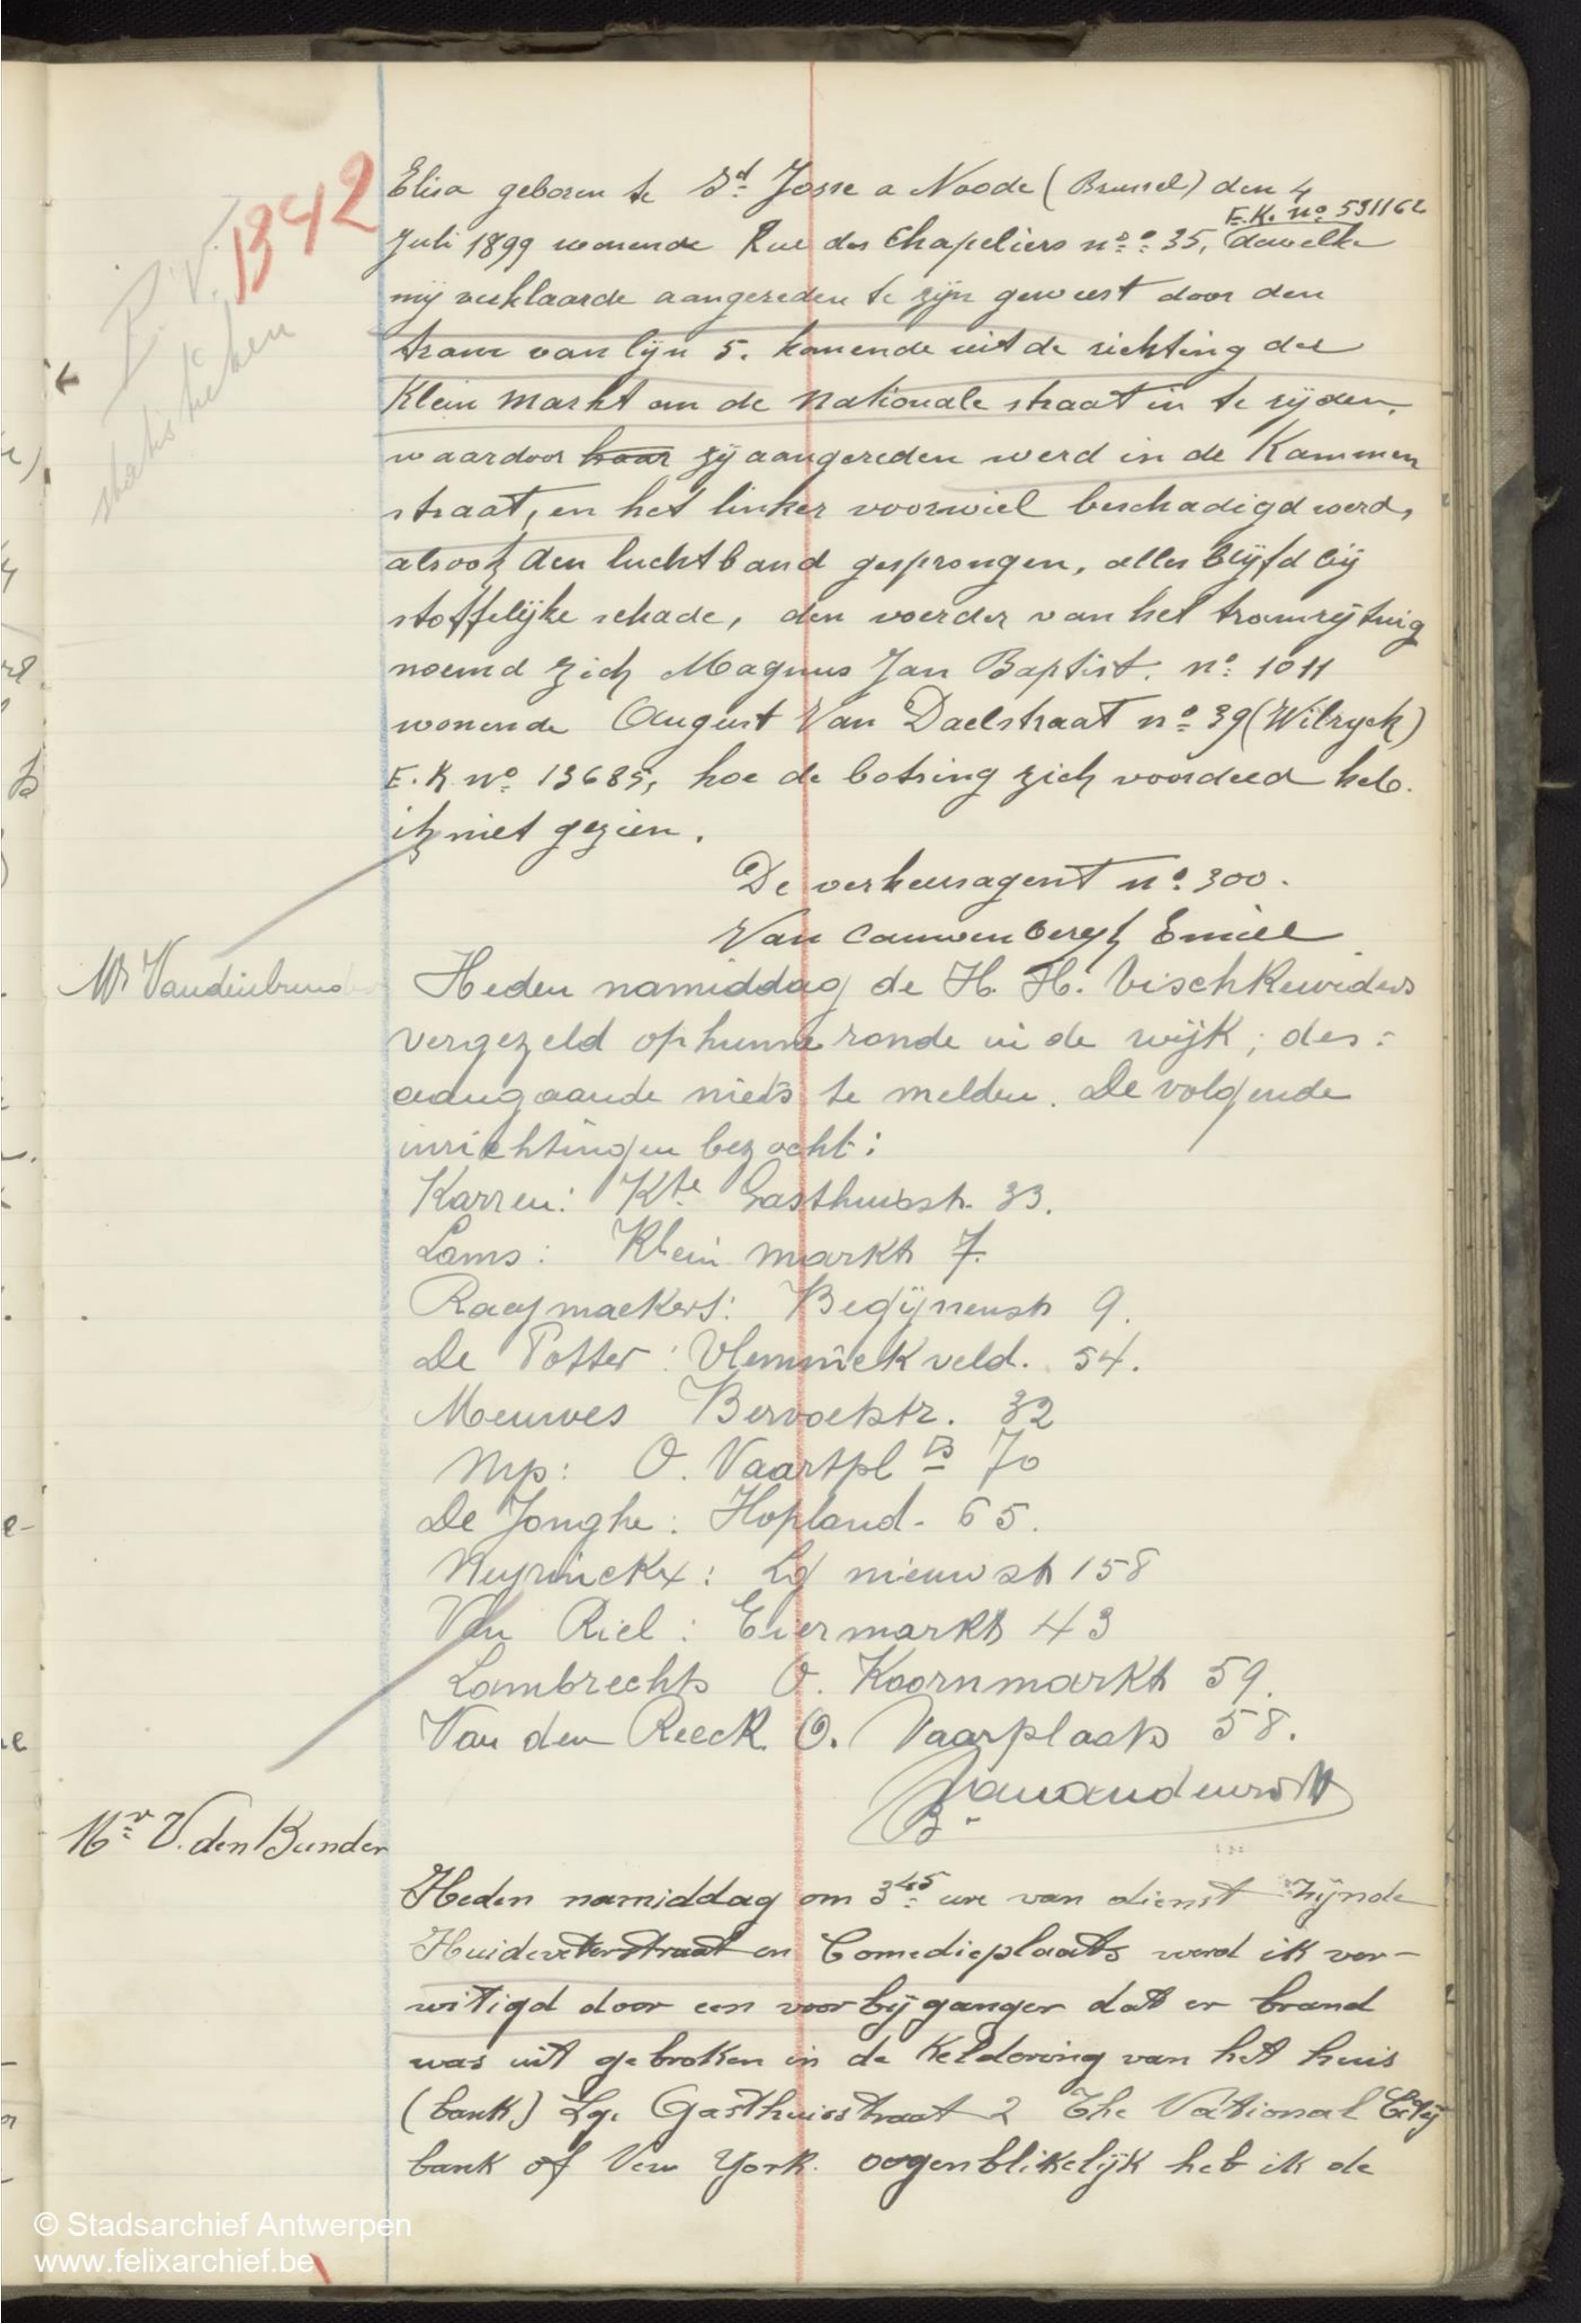 1342
P.V.
statistieken
Elisa geboren te St Josse a Noode (Brussel) den 4
E.K. no 591162
Juli 1899 wonende Rue des Chapeliers no 35, dewelke
mij verklaarde aangereden te zijn geweest door den
tram van lijn 5. komende uit de richting der
Klein Markt om de Nationale straat in te rijden,
waardoor haar zij aangereden werd in de Kammen
straat, en het linker voorwiel beschadigd werd,
alsook den luchtband gesprongen, alles blijfd bij
stoffelijke schade, den voerder van het tramrijtuig
noemd zich Magnus Jan Baptist. no 1011
wonende August Van Daelstraat no 39 (Wilryck)
E.K. no 13685, hoe de botsing zich voordeed heb
ik niet gezien.
De verkeersagent no 300.
Van Cauwenbergh Emiel
Mr Vandenbunder
Heden namiddag de H. H. Vischkeurders
vergezeld op hunne ronde in de wijk; des=
aangaande niets te melden. De volgende
inrichtingen bezocht:
Karren: Kte Gasthuisstr. 33.
Lams: Klein markt 7.
Raaymaekers: Begijnenstr 9.
De Potter: Vlemminckveld. 54.
Meuwes Bervoetstr. 32
Mp: O. Vaartpl 70
De Jonghe: Hopland - 65.
Neyrinckx: Lg nieuwstr 158
Van Riel: Eiermarkt 43
Lambrechts O. Koornmarkt 59.
Van den Reeck O. Vaarplaats 58.
Mr V. den Bunder
Heden namiddag om 3 45 ure van dienst zijnde
Huidevetterstraat en Comedieplaats werd ik ver-
witigd door een voorbijganger dat er brand
was uit gebroken in de Keldering van het huis
(bank) Lge Gasthuisstraat 2 The National City
bank of New York. oogenblikelijk heb ik de
© Stadsarchief Antwerpen
www.felixarchief.be